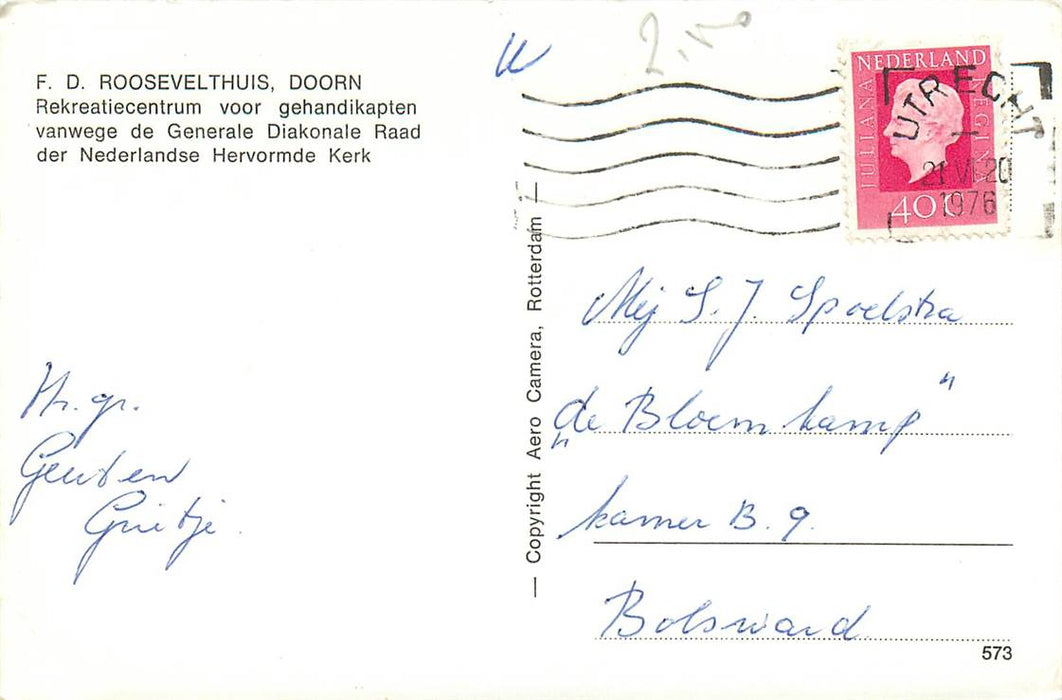 F. D. ROOSEVELTHUIS, DOORN
Rekreatiecentrum voor gehandikapten
vanwege de Generale Diakonale Raad
der Nederlandse Hervormde Kerk
Hr. gr.
Geert en
Grietje.
— Copyright Aero Camera, Rotterdam —
2,50
NEDERLAND
JULIANA REGINA
40 c
UTRECHT
21.VI.20
1976
Mej S. J. Spoelstra
„de Bloemkamp"
kamer B. 9.
Bolsward
573